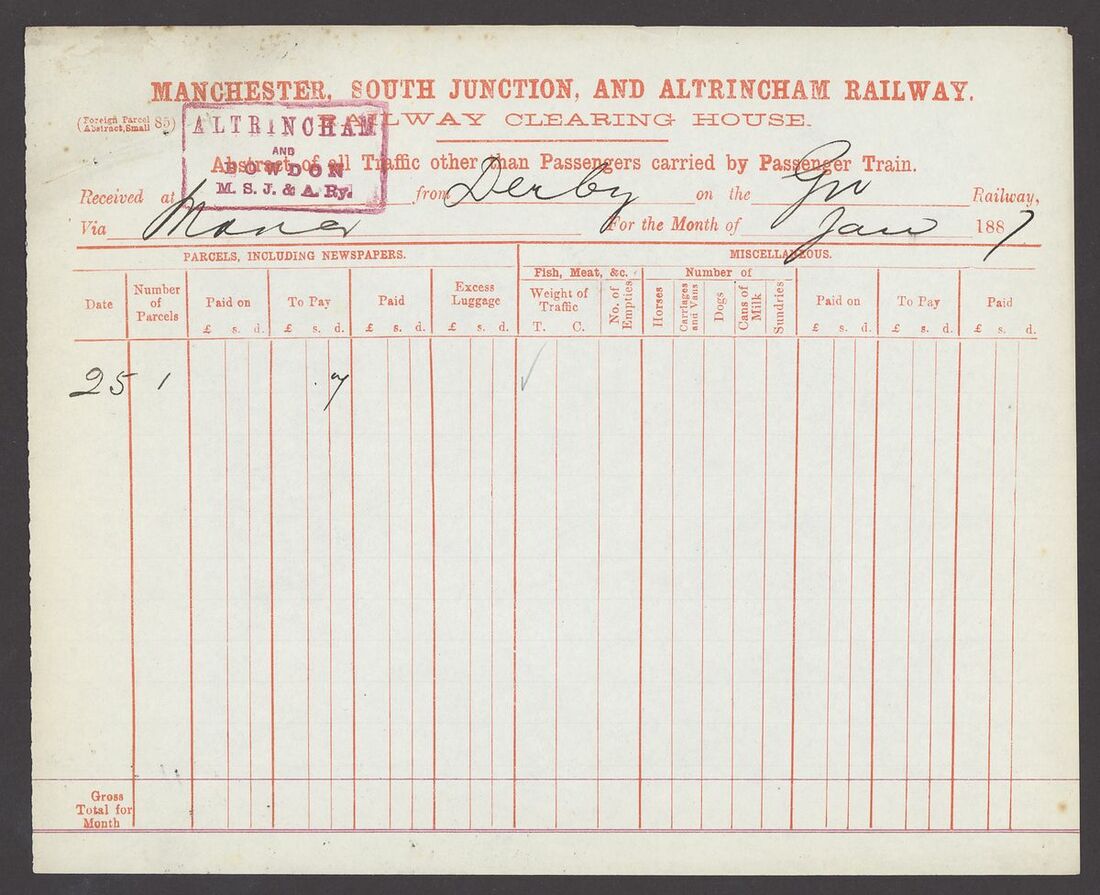 MANCHESTER, SOUTH JUNCTION, AND ALTRINCHAM RAILWAY.
(Foreign Parcel Abstract, Small 85)
RAILWAY CLEARING HOUSE.
ALTRINCHAM
AND
BOWDON
M. S. J. & A. Ry.
Abstract of all Traffic other than Passengers carried by Passenger Train.
Received at from Derby on the Gn Railway,
Via For the Month of Jan 1887
PARCELS, INCLUDING NEWSPAPERS. MISCELLANEOUS.
Fish, Meat, &c. Number of
Date Number of Parcels Paid on To Pay Paid Excess Luggage Weight of Traffic No. of Empties Horses Carriages and Vans Dogs Cans of Milk Sundries Paid on To Pay Paid
£ s. d. £ s. d. £ s. d. £ s. d. T. C. £ s. d. £ s. d. £ s. d.
25 1 . 7 ✓
Gross
Total for
Month